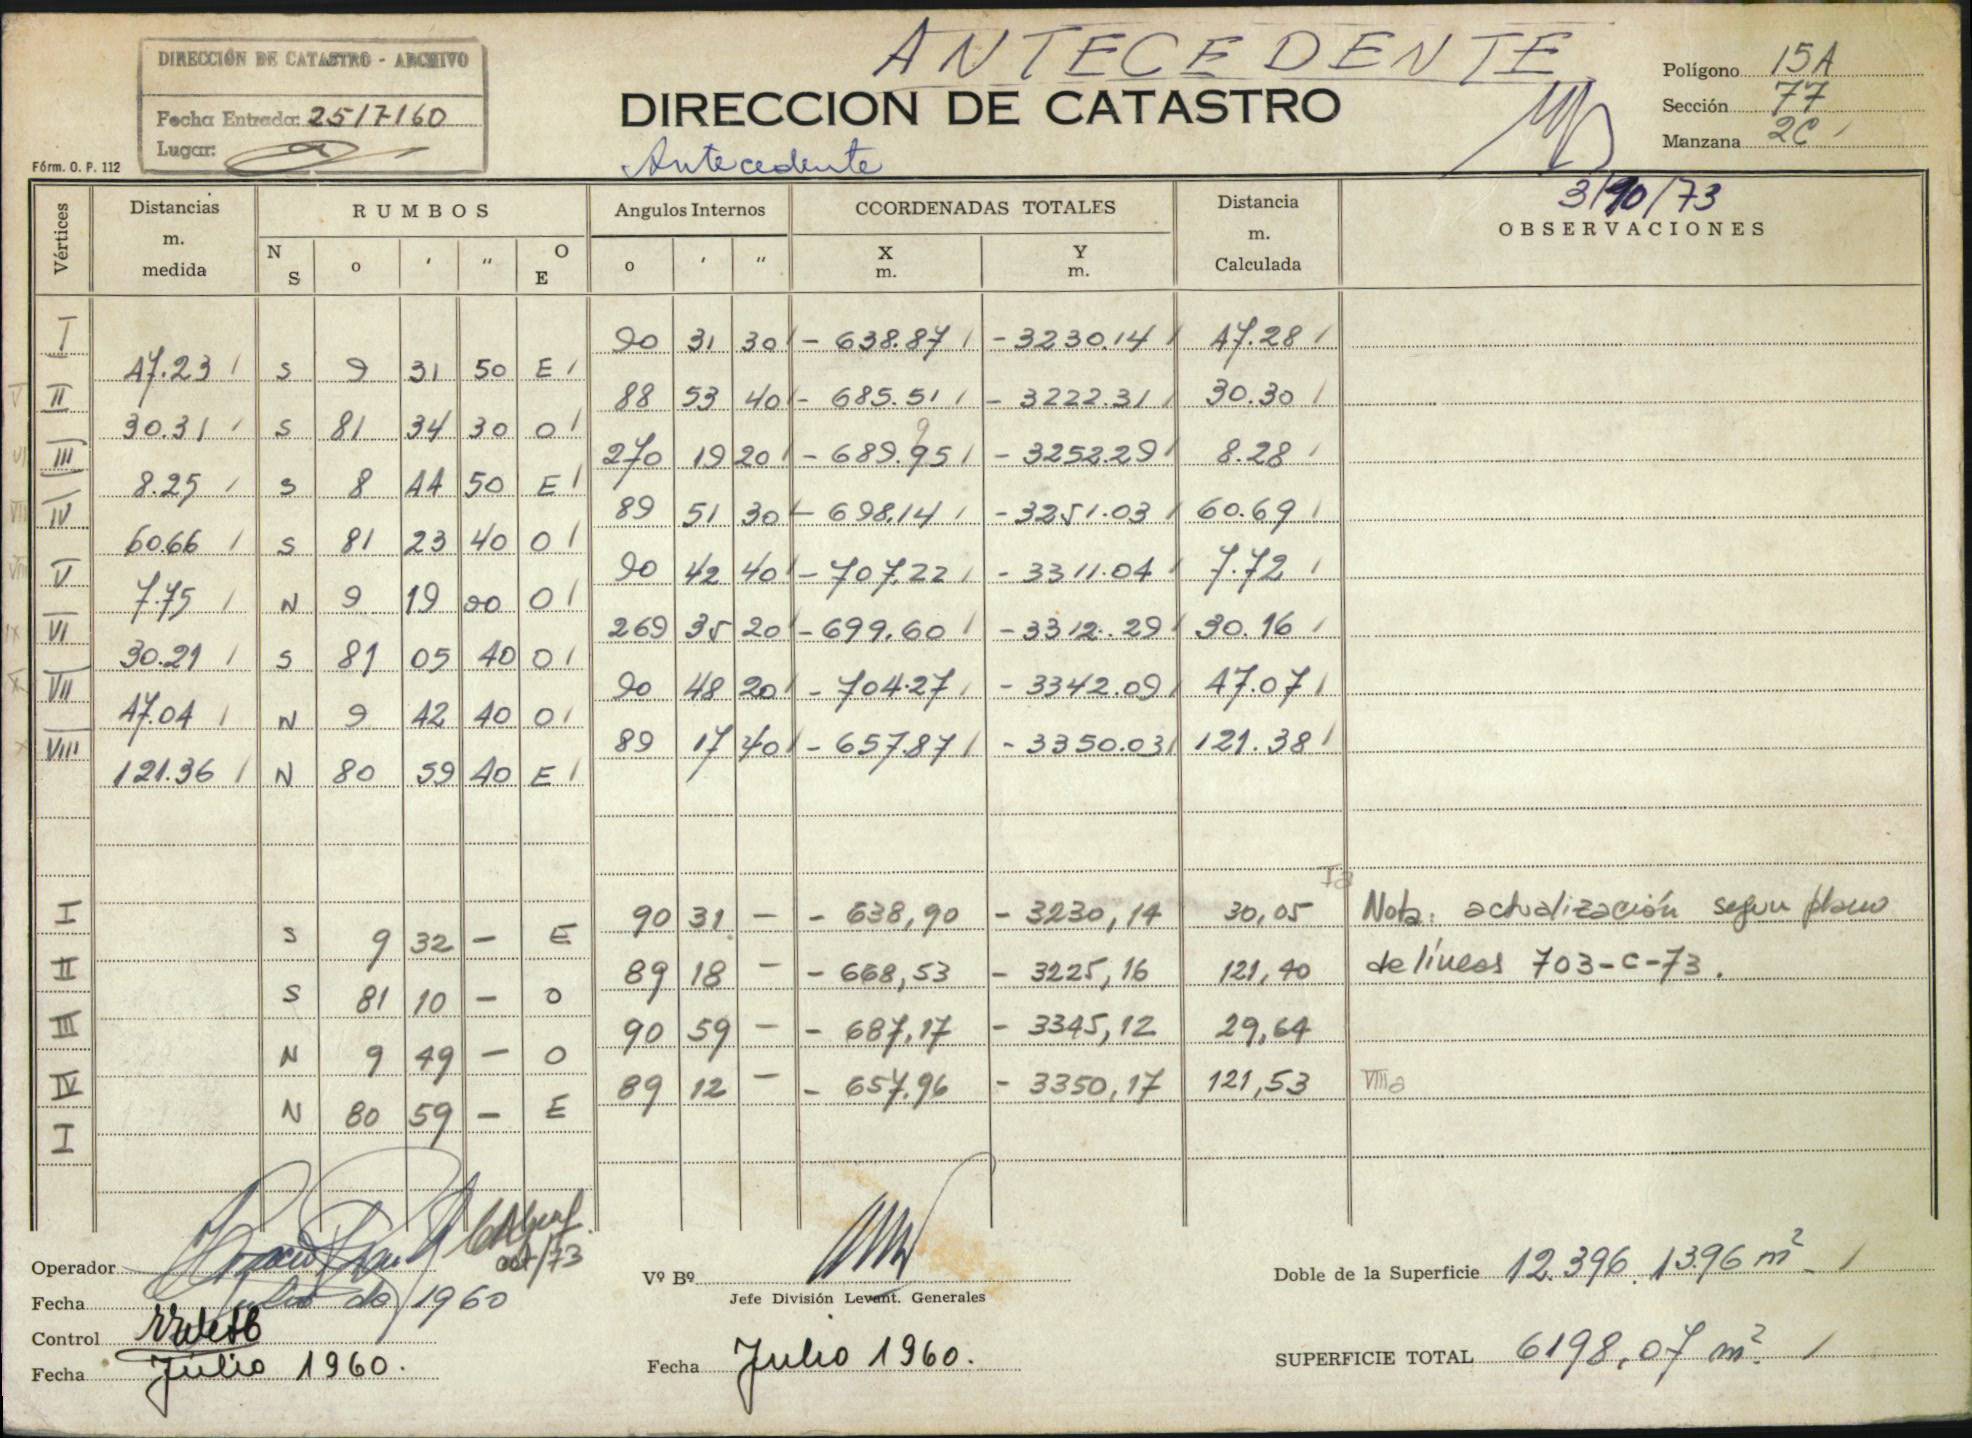 ANTECEDENTE
DIRECCIÓN DE CATASTRO - ARCHIVO
Fecha Entrada: 25/7/60
Lugar:
DIRECCION DE CATASTRO
Antecedente
Polígono 15A
Sección 77
Manzana 2C
Fórm. O. P. 112
3/10/73
Vértices Distancias m. medida RUMBOS Angulos Internos COORDENADAS TOTALES Distancia m. Calculada OBSERVACIONES
N S o ' " O E o ' " X m. Y m.
I 90 31 30 - 638.87 - 3230.14 47.28
47.23 S 9 31 50 E
II 88 53 40 - 685.51 - 3222.31 30.30
30.31 S 81 34 30 O
III 270 19 20 - 689.95 - 3252.29 8.28
8.25 S 8 44 50 E
IV 89 51 30 - 698.14 - 3251.03 60.69
60.66 S 81 23 40 O
V 90 42 40 - 707.22 - 3311.04 7.72
7.75 N 9 19 00 O
VI 269 35 20 - 699.60 - 3312.29 30.16
30.21 S 81 05 40 O
VII 90 48 20 - 704.27 - 3342.09 47.07
47.04 N 9 42 40 O
VIII 89 17 40 - 657.87 - 3350.03 121.38
121.36 N 80 59 40 E
Ia
I 90 31 — - 638,90 - 3230,14 30,05 Nota: actualización segun plano
S 9 32 — E
II 89 18 — - 668,53 - 3225,16 121,40 de líneas 703-C-73.
S 81 10 — O
III 90 59 — - 687,17 - 3345,12 29,64
N 9 49 — O
IV 89 12 — - 657,96 - 3350,17 121,53 VIIIa
N 80 59 — E
I
oct/73
Operador
Fecha Julio de 1960
Control
Fecha Julio 1960.
Vº Bº
Jefe División Levant. Generales
Fecha Julio 1960.
Doble de la Superficie 12.396.1396 m²
SUPERFICIE TOTAL 6198,07 m²